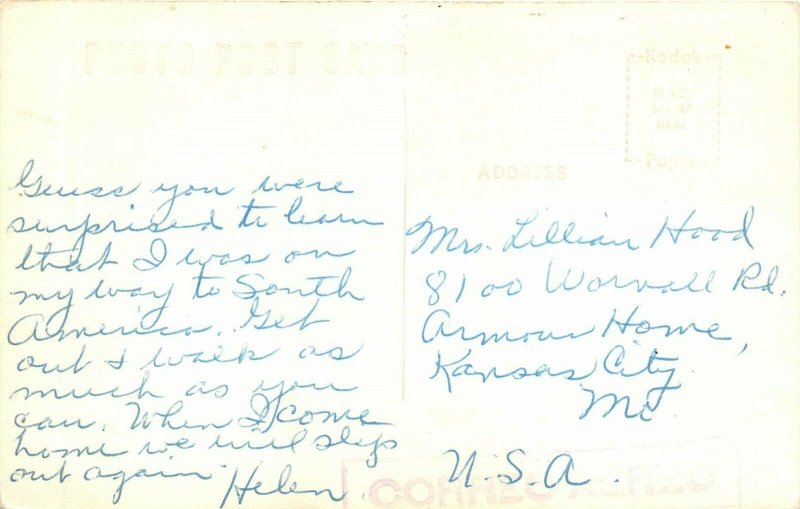 PHOTO POST CARD
--Kodak--
PLACE
STAMP
HERE
--Paper--
ADDRESS
Guess you were
surprised to learn
that I was on
my way to South
America. Get
out & walk as
much as you
can. When I come
home we will step
out again.
Helen.
Mrs. Lillian Hood
8100 Wornall Rd.
Armour Home,
Kansas City.
Mo.
U.S.A.
CORREO AEREO